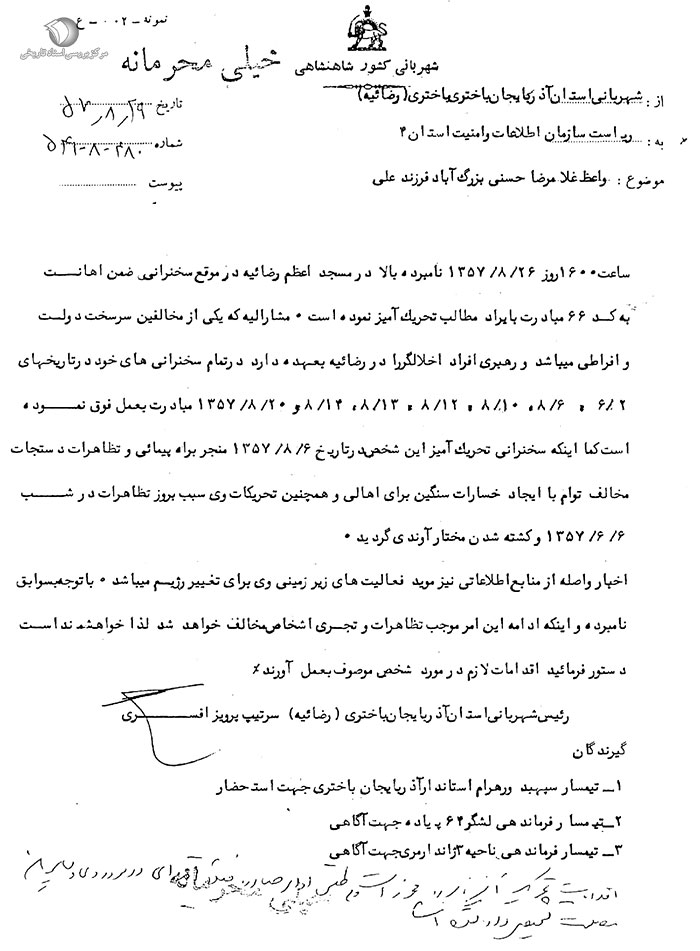 نمونه - ۰۰۲ - ع
مرکز بررسی اسناد تاریخی
شهربانی کشور شاهنشاهی
خیلی محرمانه
از : شهربانی استان آذربایجان باختری باختری (رضائیه)
تاریخ ۵۷/۸/۲۹
به : ریاست سازمان اطلاعات و امنیت استان ۴
شماره ۵۴۹-۸-۴۸۰
موضوع : واعظ غلامرضا حسنی بزرگ آباد فرزند علی
پیوست
ساعت ۱۶۰۰ روز ۲۶/ ۸/ ۱۳۵۷ نامبرده بالا در مسجد اعظم رضائیه در موقع سخنرانی ضمن اهانت
به کد ۶۶ مبادرت بایراد مطالب تحریک آمیز نموده است ۰ مشارالیه که یکی از مخالفین سرسخت دولت
و افراطی میباشد و رهبری افراد اخلالگر را در رضائیه بعهده دارد در تمام سخنرانی های خود در تاریخهای
۲/ ۶ ، ۸/۶ ، ۸/۱۰ ، ۸/۱۲ ، ۸/۱۳ ، ۸/۱۴ و ۲۰/ ۸/ ۱۳۵۷ مبادرت بعمل فوق نموده
است کما اینکه سخنرانی تحریک آمیز این شخص در تاریخ ۶/ ۸/ ۱۳۵۷ منجر براه پیمائی و تظاهرات دستجات
مخالف توام با ایجاد خسارات سنگین برای اهالی و همچنین تحریکات وی سبب بروز تظاهرات در شب
۶/ ۶/ ۱۳۵۷ و کشته شدن مختار آوندی گردید ۰
اخبار واصله از منابع اطلاعاتی نیز موید فعالیت های زیر زمینی وی برای تغییر رژیم میباشد ۰ با توجه بسوابق
نامبرده و اینکه ادامه این امر موجب تظاهرات و تجری اشخاص مخالف خواهد شد لذا خواهشمند است
دستور فرمائید اقدامات لازم در مورد شخص موصوف بعمل آورند٪
رئیس شهربانی استان آذربایجان باختری (رضائیه) سرتیپ پرویز افسری
گیرندگان
۱- تیمسار سپهبد ورهرام استاندار آذربایجان باختری جهت استحضار
۲- تیمسار فرماندهی لشگر ۶۴ پیاده جهت آگاهی
۳- تیمسار فرماندهی ناحیه ۳ ژاندارمری جهت آگاهی